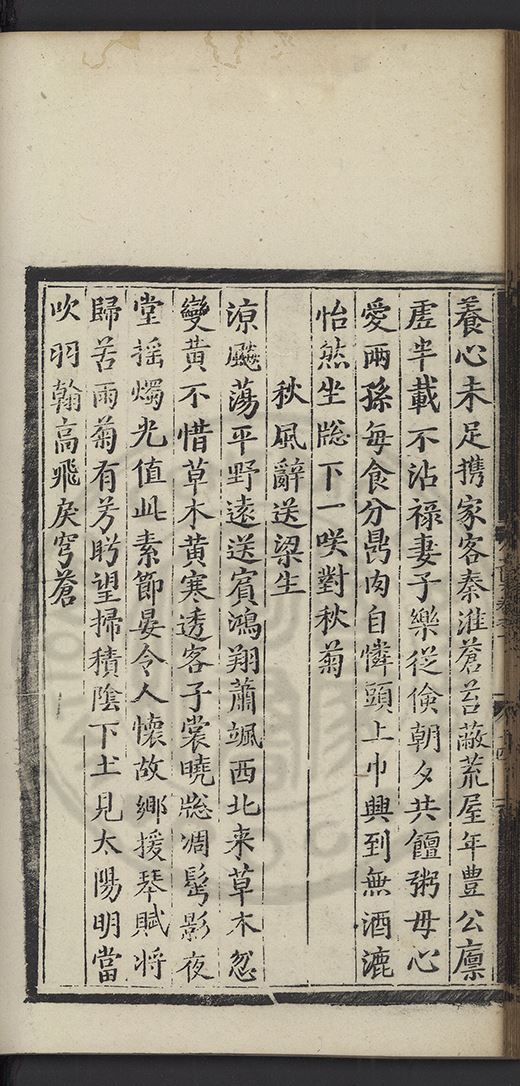 養心未足携家客秦淮蒼苔蔽荒屋年豊公廪
虗半載不沾禄妻子樂從儉朝夕共饘粥毋心
愛兩孫每食分鼎肉自憐頭上巾興到無酒漉
怡然坐牕下一咲對秋菊
秋風辭送梁生
凉飈蕩平野遠送賔鴻翔蕭颯西北来草木忽
變黄不惜草木黄寒透客子裳曉牕凋髩影夜
堂摇燭光值此素節晏令人懷故鄉援琴賦将
歸苦雨菊有芳眄望掃積隂下土見太陽明當
吹羽翰高飛戾穹蒼